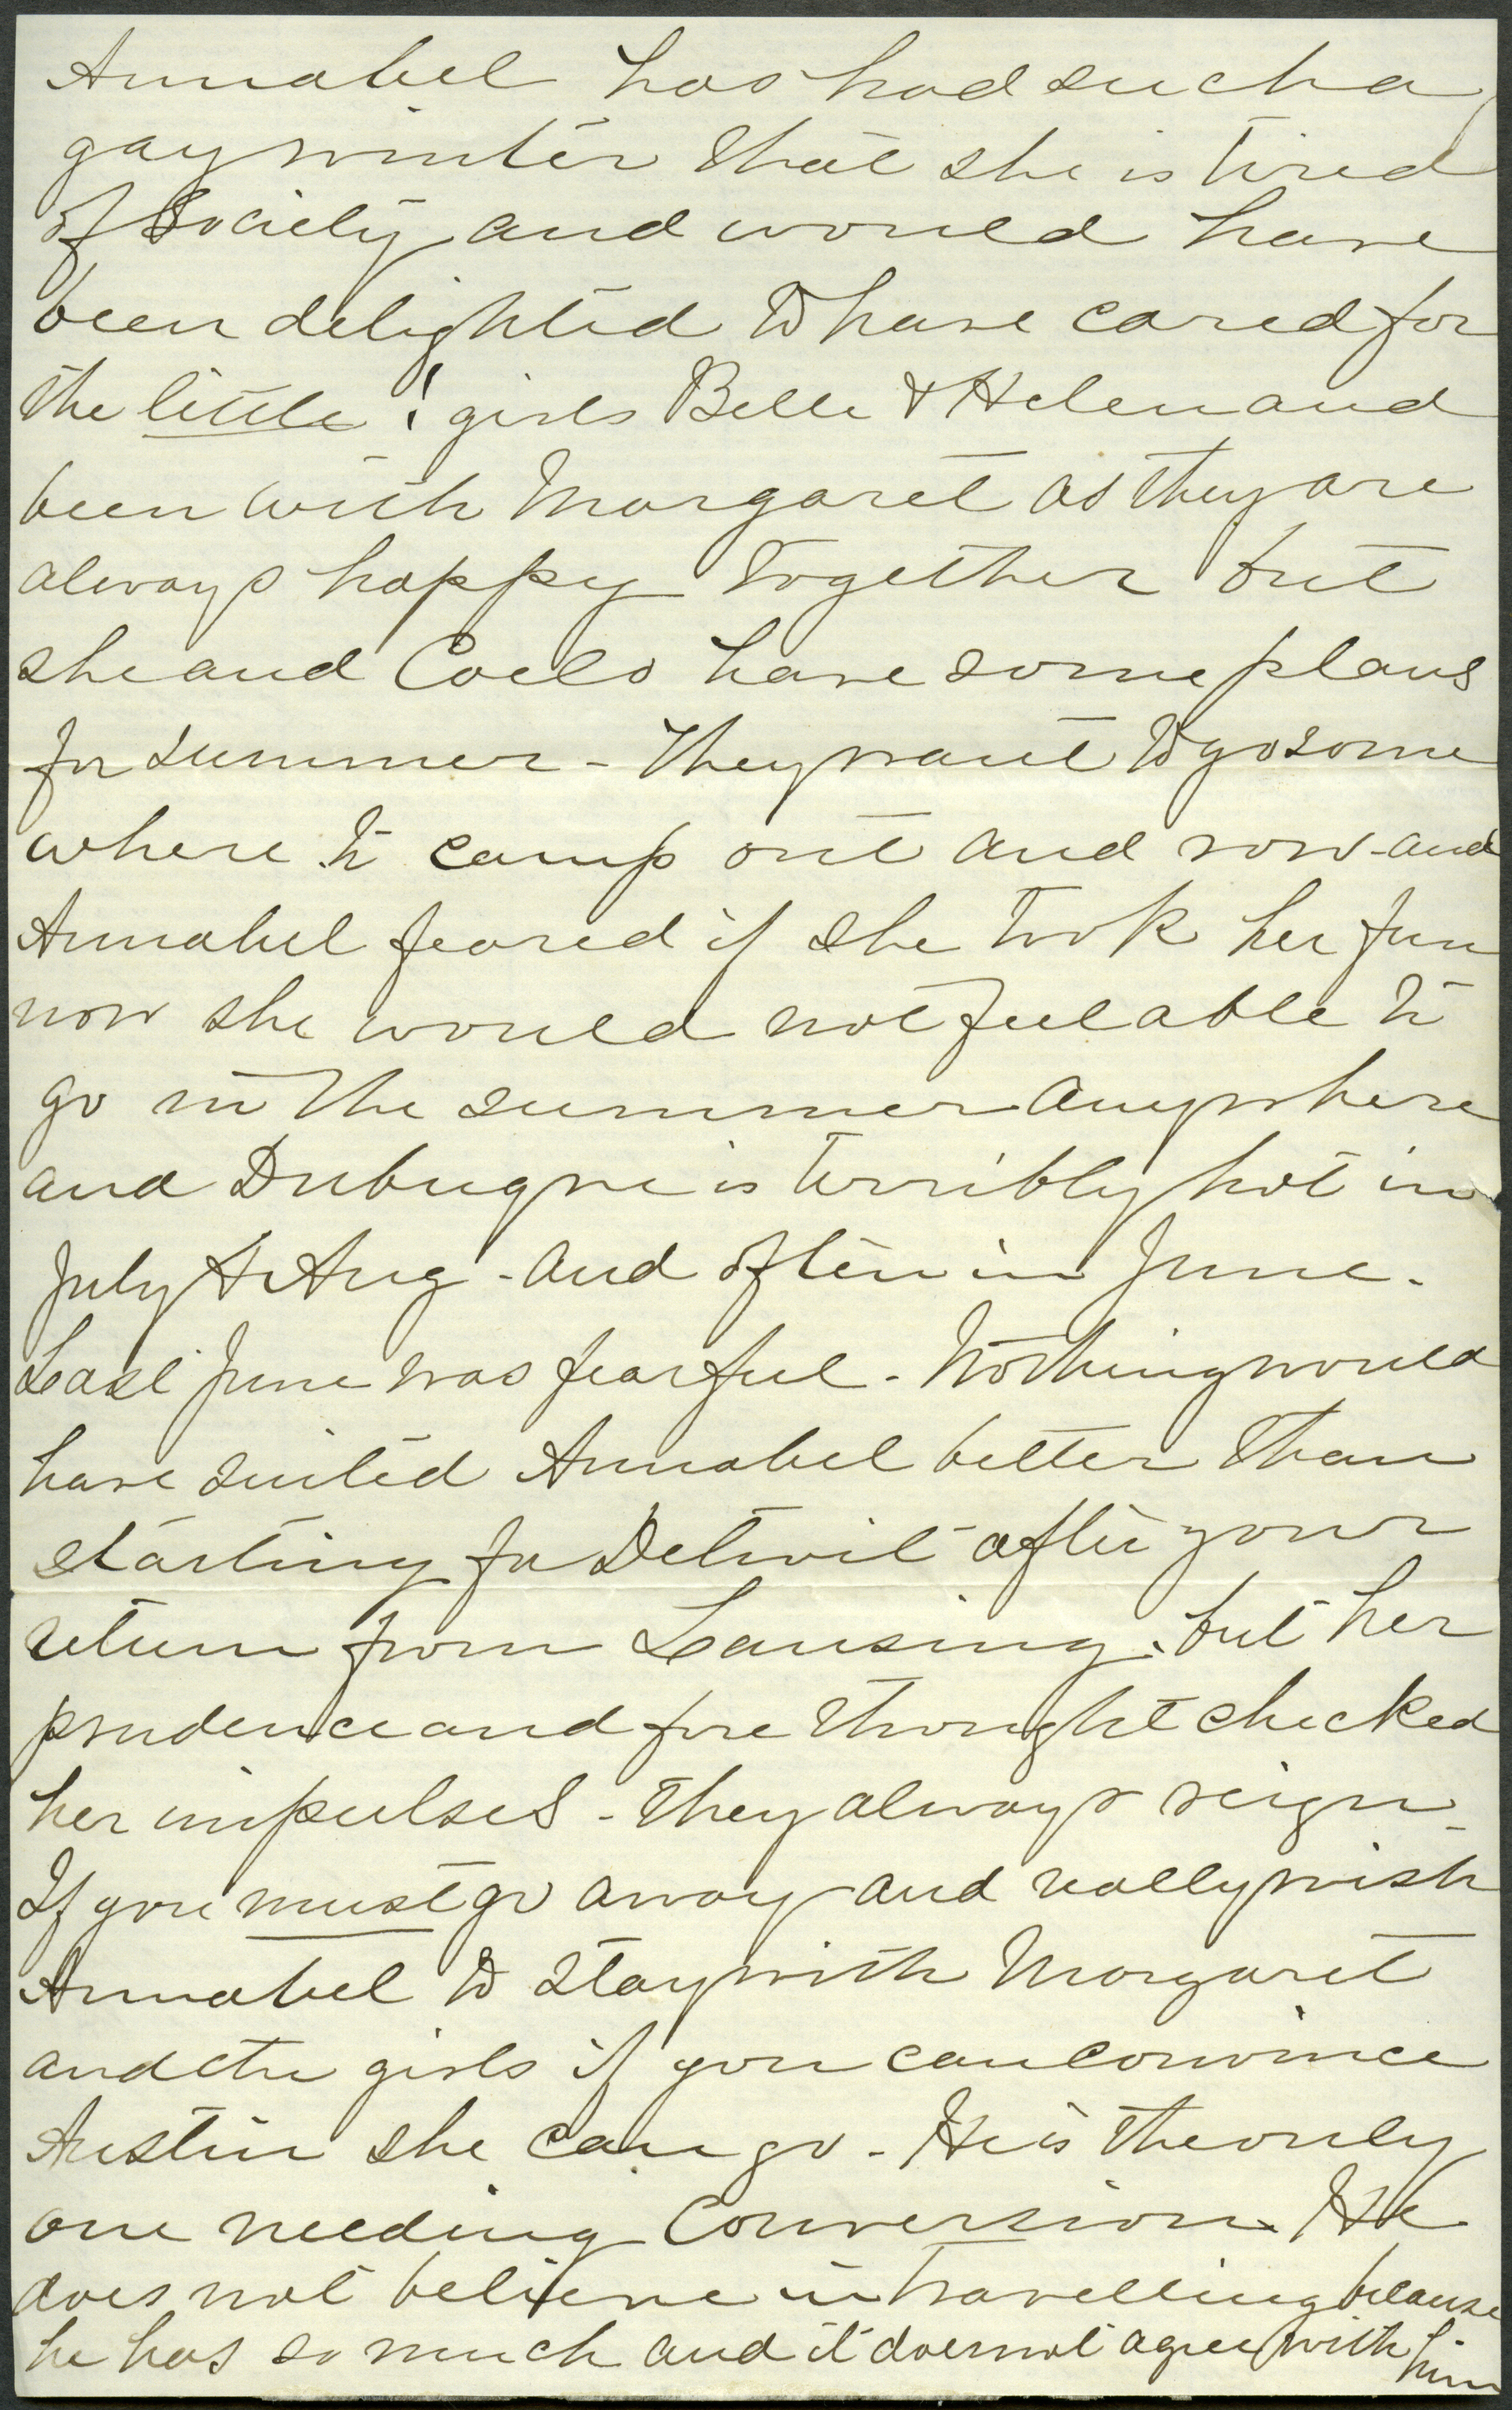 Annabel has had such a
gay winter that she is tired
of Society and would have
been delighted to have cared for
the little ! girls Belle & Helen and
been with Margaret as they are
always happy together but
she and Coells have some plans
for summer - They want to go some
where to camp out and row - and
Annabel feared if she took her fun
now she would not feel able to
go in the summer anywhere
and Dubuque is terribly hot in
July & Aug - and often in June.
Last June was fearful - Nothing would
have suited Annabel better than
starting for Detroit after your
return from Lansing, but her
prudence and fore thought checked
her impulses - They always reign -
If you must go away and really wish
Annabel to stay with Margaret
and the girls if you can convince
Austin she can go - He is the only
one needing Conversion. He
does not believe in travelling because
he has so much and it does not agree with him